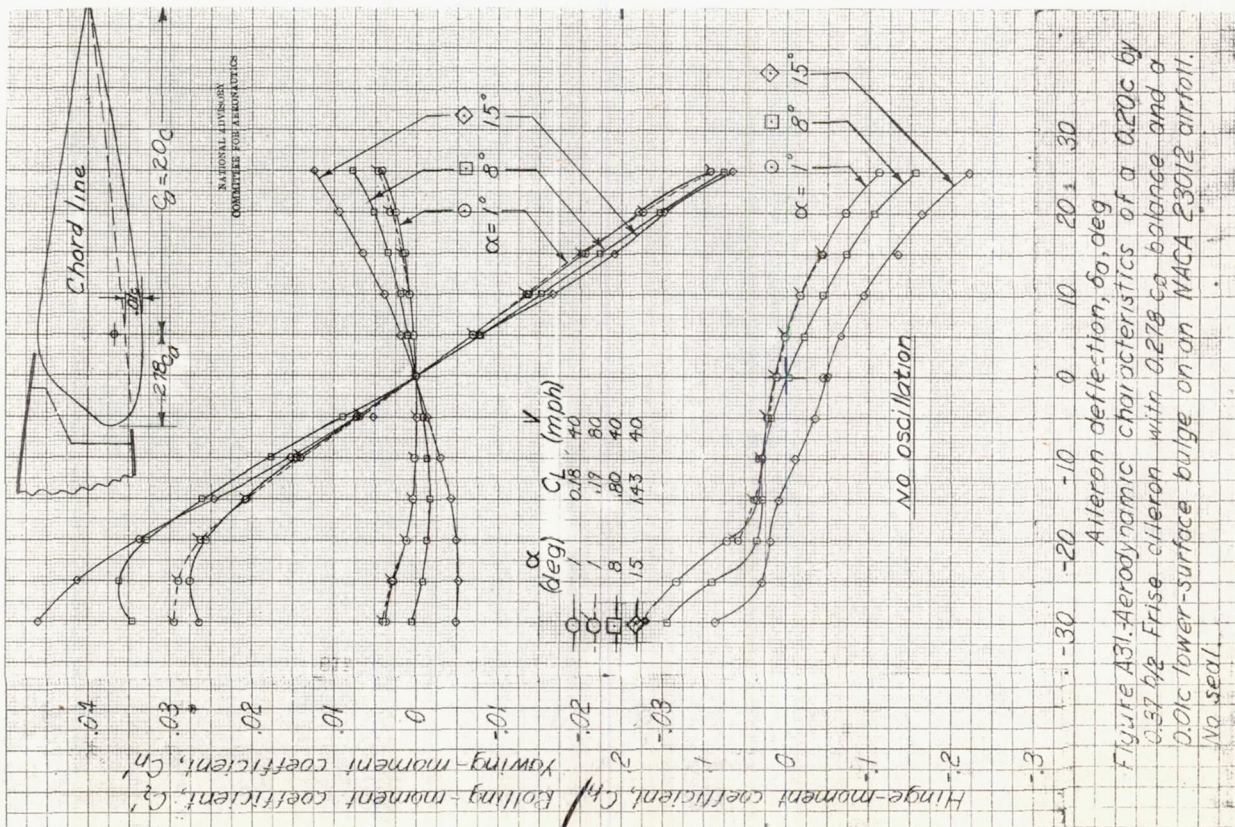 Chord line
Ca = .20c
.01c
.278ca
NATIONAL ADVISORY
COMMITTEE FOR AERONAUTICS
α = 1°
8°
15°
α = 1°
8°
15°
α
(deg)
CL
V
(mph)
1 0.18 40
1 .19 80
8 .80 40
15 1.43 40
No oscillation
Hinge-moment coefficient, Ch
Rolling-moment coefficient, Cl'
Yawing-moment coefficient, Cn'
.04
.03
.02
.01
0
-.01
-.02
-.03
.2
.1
0
-.1
-.2
-.3
-30 -20 -10 0 10 20 30
Aileron deflection, δa, deg
Figure A31.-Aerodynamic characteristics of a 0.20c by
0.37 b/2 Frise aileron with 0.278 ca balance and a
0.01c lower-surface bulge on an NACA 23012 airfoil.
No seal.